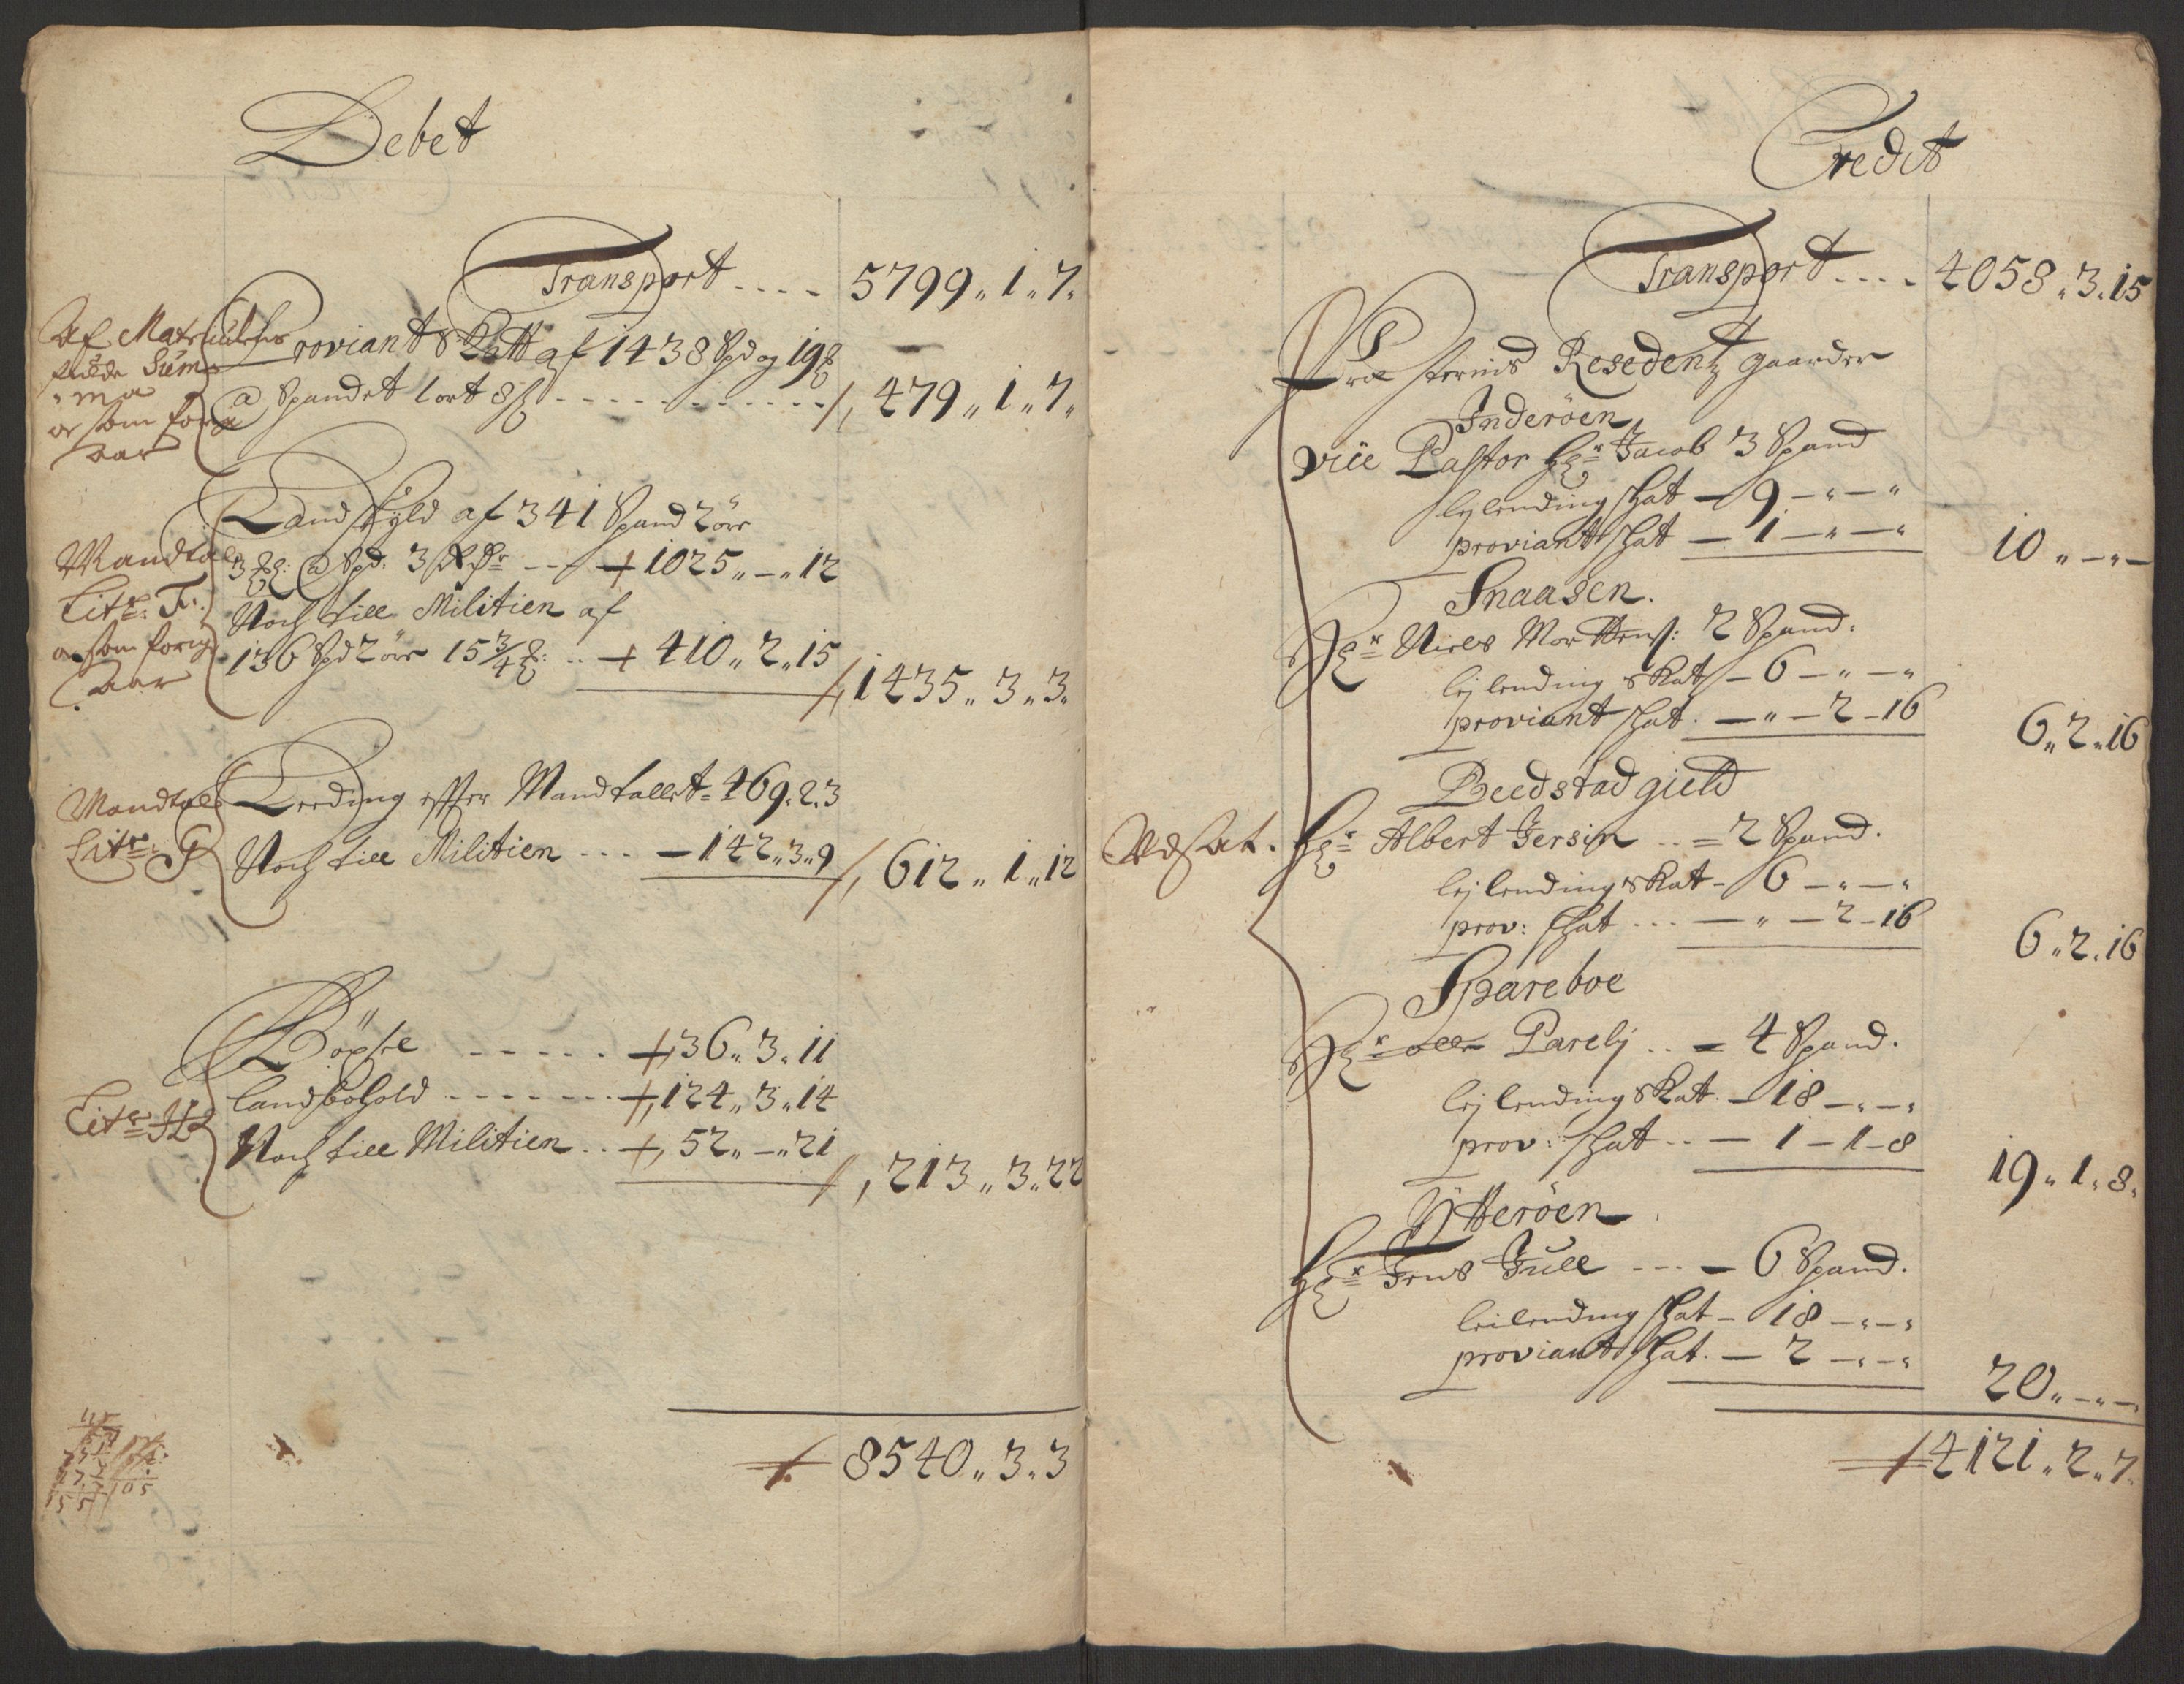 Debet
Transport .... 5799 „ 1 „ 7.
Af Matriculens
fulde Sum-
ma
er som forige
aar
Proviant Skatt af 1438 Spd og 19
a Spandet 1 ort 8 ß ------------ 479 „ 1 „ 7 „
Landskyld af 341 Spand 2 ör
3 a Spd. 3 --- 1025 „ – „ 12
Noch till Militien af
136 Spd 2 ör 15 3/4 .. 410 „ 2 „ 15
1435 „ 3 „ 3.
Mandtal
Litr: F.
som forige
aar
Leeding effter Mandtallet = 469. 2. 3
Noch till Militien ... – 142 „ 3 „ 9
612 „ 1 „ 12
Mandtal
Litr: G
Böxle ------ 36 „ 3 „ 11
landbohold ------- 124 „ 3 „ 14
Noch till Militien .. 52 „ – „ 21
213 „ 3 „ 22
Litr H
8540 „ 3 „ 3
Credit
Transport .... 4058 „ 3 „ 15
Præsternis Resedentz gaarder
Inderöen
vice Pastor Hr Jacob 3 Spand
lejlending skat – 9 – „ – „
proviant skat – 1 – „ – „
10 „ – „ –
Snaasen.
Hr Niels Mortens: 2 Spand.
lejlending skat – 6 – „ – „
proviant skat. – „ – 2 – 16
6 „ 2 „ 16
Beedstadgield
Hr Albert Jersin .. = 2 Spand.
lejlending skat – 6 – „ – „
prov: skat ... – „ – 2 – 16
6 „ 2 „ 16
Spareboe
Hr Parelj .. = 4 Spand.
lejlending skat. – 18 – „ – „
prov: skat .. – 1 – 1 – 8
19 „ 1 „ 8.
Ÿtteröen
Hr Jens Juell --- – 6 Spand.
leilending skat – 18 – „ – „
proviant skat. – 2 – „ – „
20 „ – „ –
4121 „ 2 „ 7.